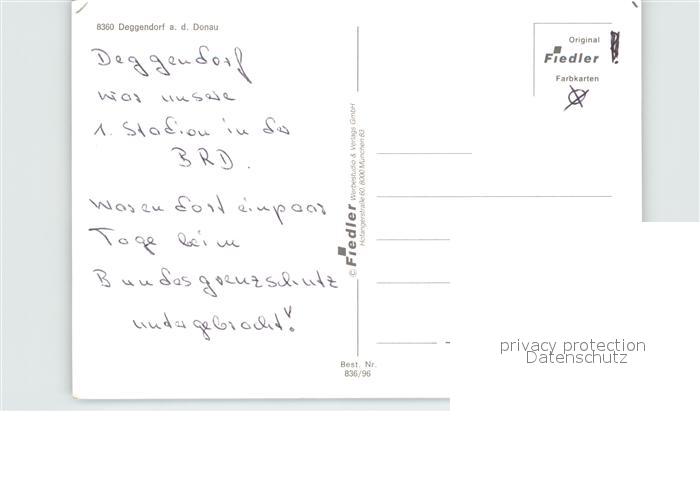 8360 Deggendorf a. d. Donau
Deggendorf
war unsere
1. Stadion in der
BRD.
Waren dort ein paar
Tage beim
Bundesgrenzschutz
untergebracht!
© Fiedler Werbestudio & Verlags GmbH
Hofangerstraße 60, 8000 München 83
Best. Nr.
836/96
Original
Fiedler
Farbkarten
privacy protection
Datenschutz